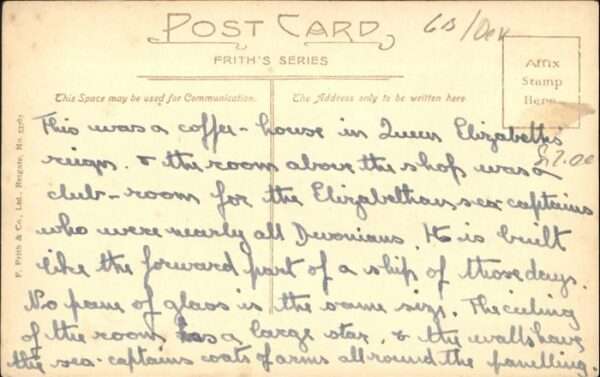 POST CARD
FRITH'S SERIES
6B/Dev
Affix
Stamp
Here
This Space may be used for Communication.
The Address only to be written here
F. Frith & Co., Ltd., Reigate, No.
This was a coffee-house in Queen Elizabeth's
reign. & the room above the shop was a
27.00
club-room for the Elizabethan sea captains
who were nearly all Devonians. It is built
like the forward part of a ship of those days.
No pane of glass is the same size. The ceiling
of the room has a large star, & the walls have
the sea-captains coats of arms all round the panelling.